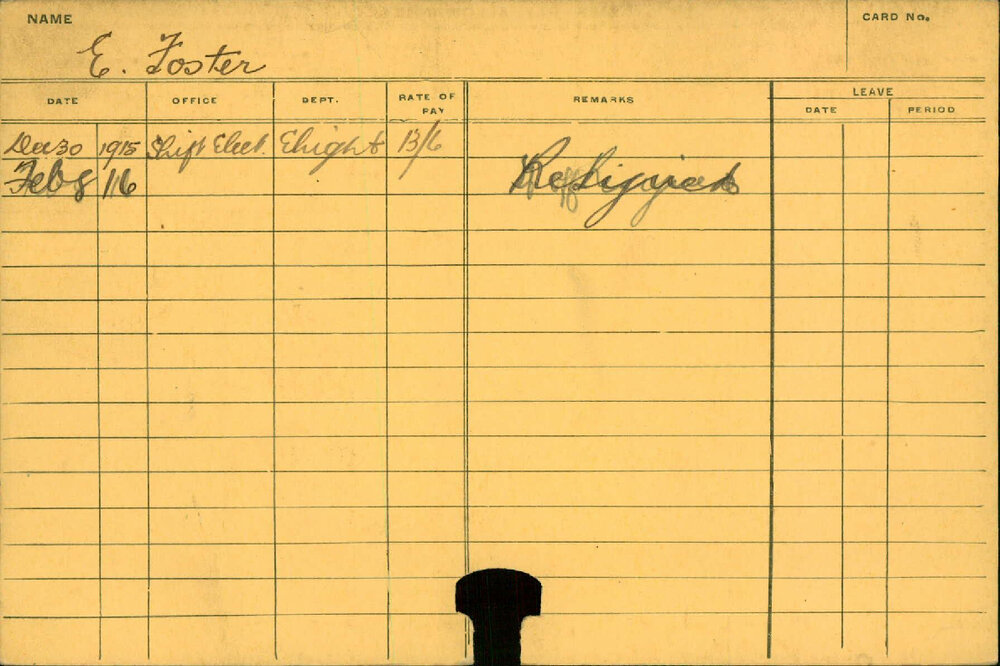 NAME
CARD No.
E. Foster
DATE OFFICE DEPT. RATE OF PAY REMARKS LEAVE
DATE PERIOD
Dec 30 1915 Shift Elect. Elight 13/6
Feb 8 16 Resigned